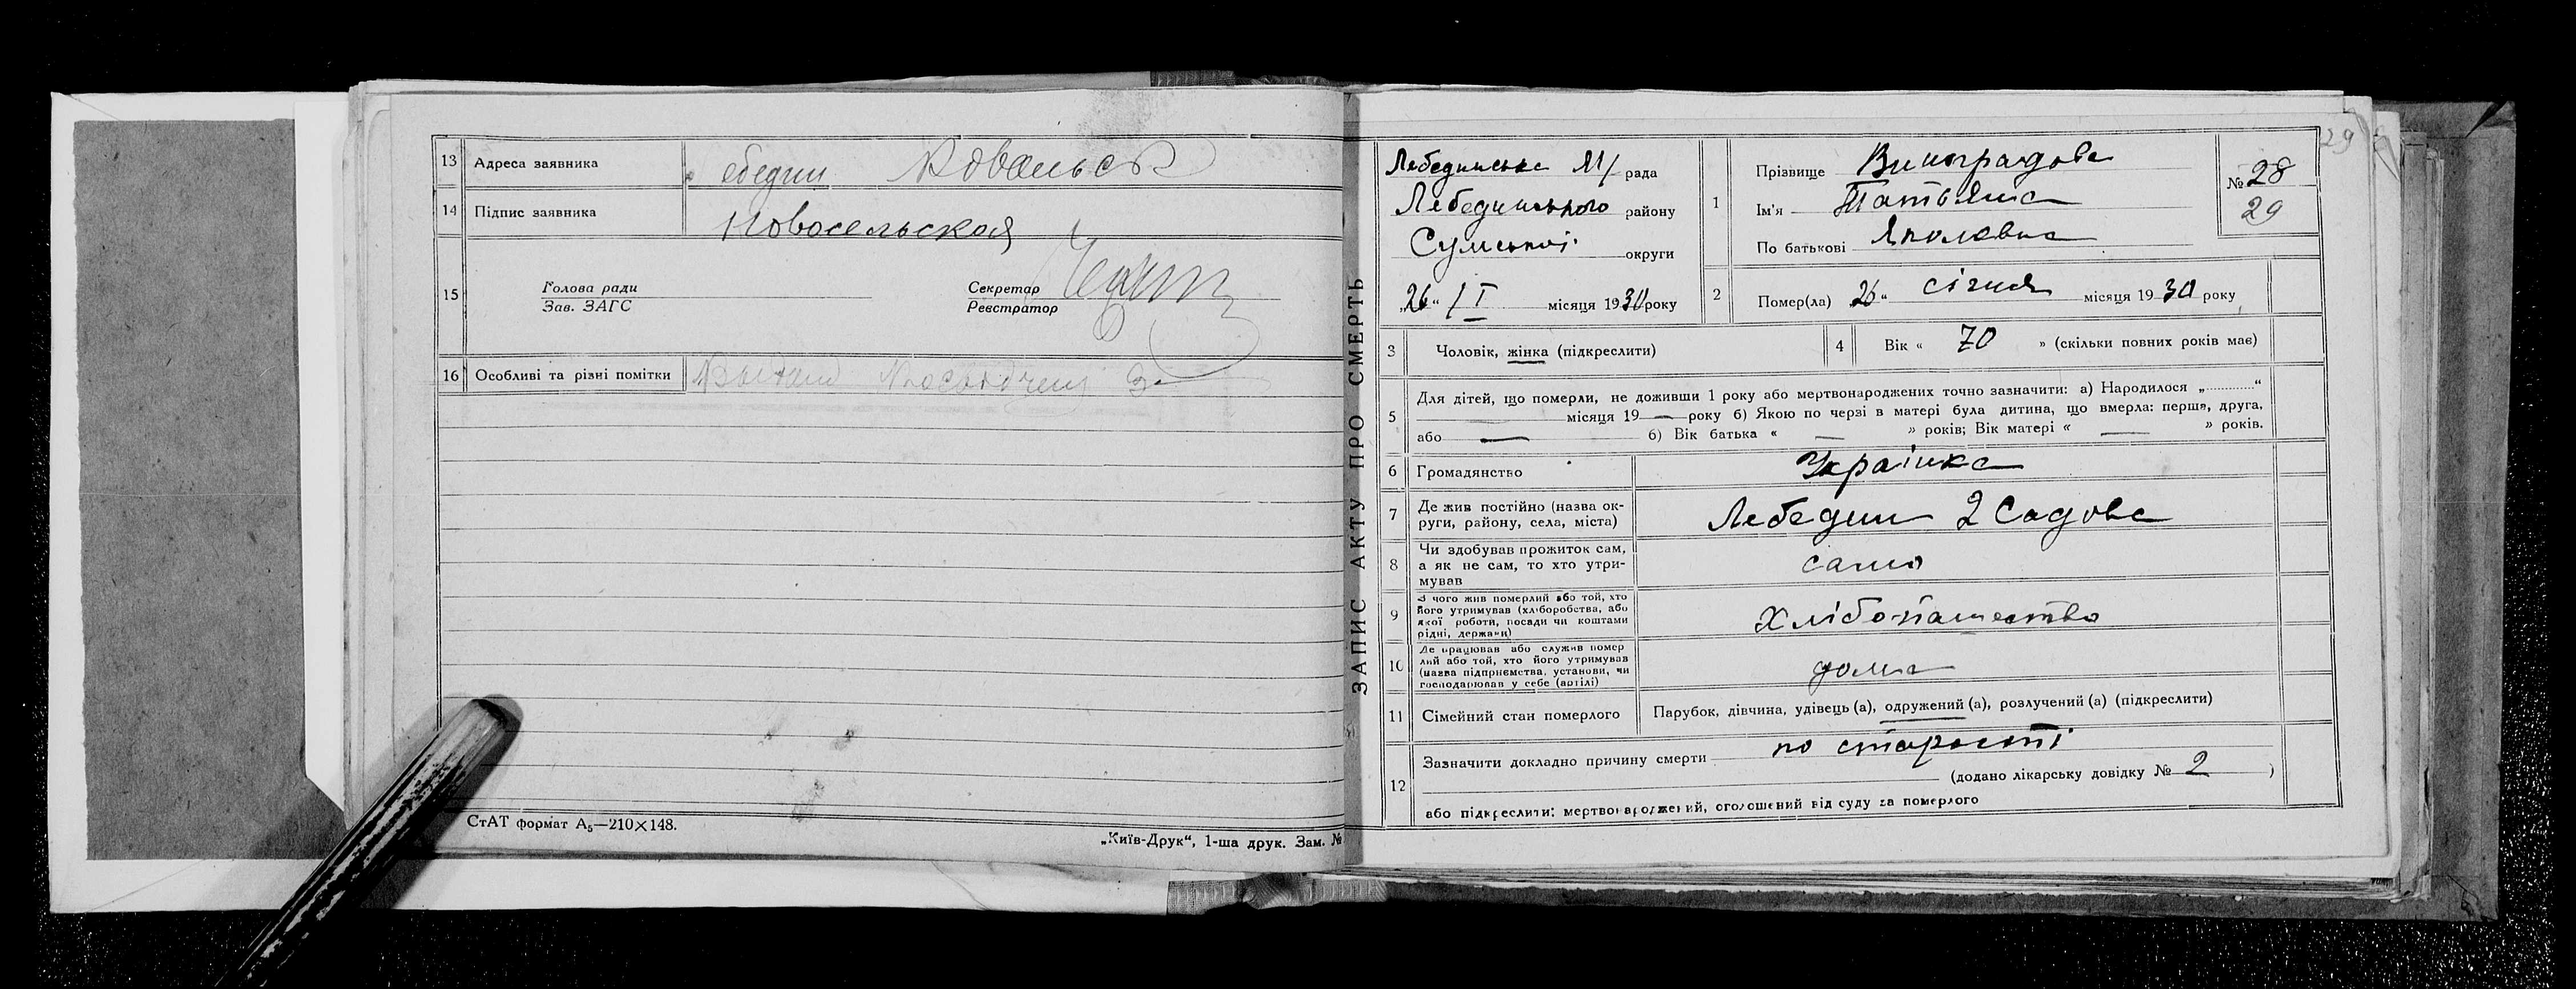 13 Адреса заявника ебедин Ковальск
14 Підпис заявника Новосельская
15 Голова ради
Зав. ЗАГС
Секретар
Реєстратор
16 Особливі та різні помітки
СтАТ формат А₅—210×148.
„Київ-Друк“, 1-ша друк. Зам. №
ЗАПИС АКТУ ПРО СМЕРТЬ
29
Лебединська М/ рада
Лебединського району
Сумської округи
„26“ / I місяця 1930 року
1 Прізвище Виноградова
Ім'я Татьяна
По батькові
№ 28
29
2 Помер(ла) 26 „ січня місяця 1930 року
3 Чоловік, жінка (підкреслити)
4 Вік « 70 » (скільки повних років має)
5 Для дітей, що померли, не доживши 1 року або мертвонароджених точно зазначити: а) Народилося „............“
місяця 19 — року б) Якою по черзі в матері була дитина, що вмерла: перша, друга,
або — б) Вік батька « — » років; Вік матері « — » років.
6 Громадянство Українка
7 Де жив постійно (назва ок-
руги, району, села, міста) Лебедин 2 Садова
8 Чи здобував прожиток сам,
а як не сам, то хто утри-
мував сама
9 З чого жив померлий або той, хто
його утримував (хліборобства, або
якої роботи, посади чи коштами
рідні, держави) Хлібопашество
10 Де працював або служив помер
лий або той, хто його утримував
(назва підприємства, установи, чи
господарював у себе (артілі) дома
11 Сімейний стан померлого Парубок, дівчина, удівець (а), одружений (а), розлучений (а) (підкреслити)
12 Зазначити докладно причину смерти по старості
(додано лікарську довідку № 2 )
або підкреслити: мертвонароджений, оголошений від суду за померлого